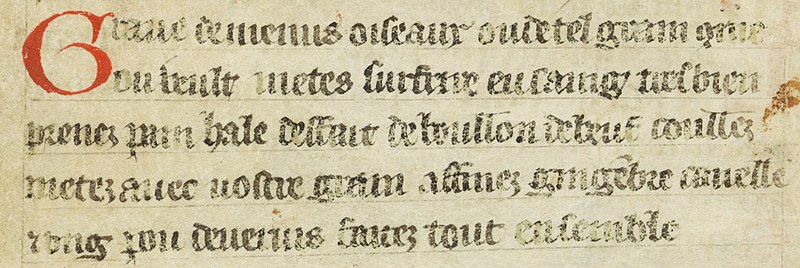 Grave de menus oiseaux ou de tel grain que
on veult metes surfrire en saing tresbien
prenez pain hale deffait de boullon de beuf coullez
metez avec vostre grain affinez gingembre canelle
ung pou de verius favez tout ensemble